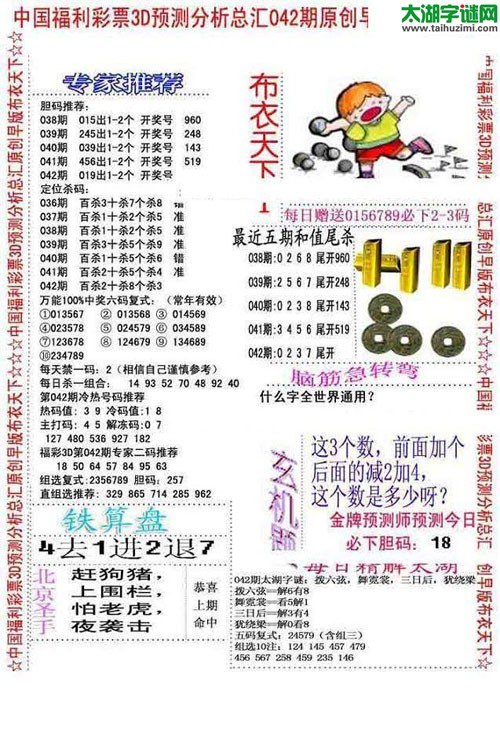 中国福利彩票3D预测分析总汇042期原创早
太湖字谜网
www.taihuzimi.com
☆中国福利彩票3D预测分析总汇原创早版布衣天下☆☆
专家推荐
胆码推荐:
038期 015出1-2个 开奖号 960
039期 245出1-2个 开奖号 248
040期 039出1-2个 开奖号 143
041期 456出1-2个 开奖号 519
042期 019出1-2个 开奖号
定位杀码:
036期 百杀3十杀7个杀8
037期 百杀2十杀7个杀5 准
038期 百杀2十杀7个杀5 准
039期 百杀1十杀9个杀5 准
040期 百杀5十杀4个杀6 错
041期 百杀2十杀5个杀4 准
042期 百杀2十杀8个杀3
万能100%中奖六码复式: (常年有效)
①013567 ②013568 ③014569
④023578 ⑤024579 ⑥034589
⑦123678 ⑧124679 ⑨134689
⑩234789
每天禁一码: 2 (相信自己谨慎参考)
每日杀一组合: 14 93 52 70 48 92 40
第042期冷热号码推荐
热码值: 3 9 冷码值:1 8
主打码: 4 5 解冻码:0 7
127 480 536 927 182
福彩3D第042期专家二码推荐
18 50 64 57 84 95 63
组选复式:2356789 胆码: 257
直组选推荐: 329 865 714 285 962
铁算盘
4去1进2退7
北京圣手
赶狗猪，
上围栏，
怕老虎，
夜袭击
恭喜
上期
命中
布衣天下
每日赠送0156789必下2-3码
最近五期和值尾杀
038期:0 2 6 8 尾开960
039期:0 3 6 7 尾开248
040期:0 2 3 9 尾开143
041期:3 4 5 6 尾开519
042期:0 2 3 7 尾开
脑筋急转弯
什么字全世界通用?
玄机题
这3个数，前面加个
后面的减2加4，
这个数是多少呀?
金牌预测师预测今日
必下胆码: 18
每日精解太湖
042期太湖字谜: 拨六弦，舞霓裳，三日后，犹绕梁
拨六弦==解6有8
舞霓裳==看5解1
三日后==解3有4
犹绕梁==解0看8
五码复式: 24579 (含组三)
组选10注: 124 145 457 479
456 567 258 459 235 146